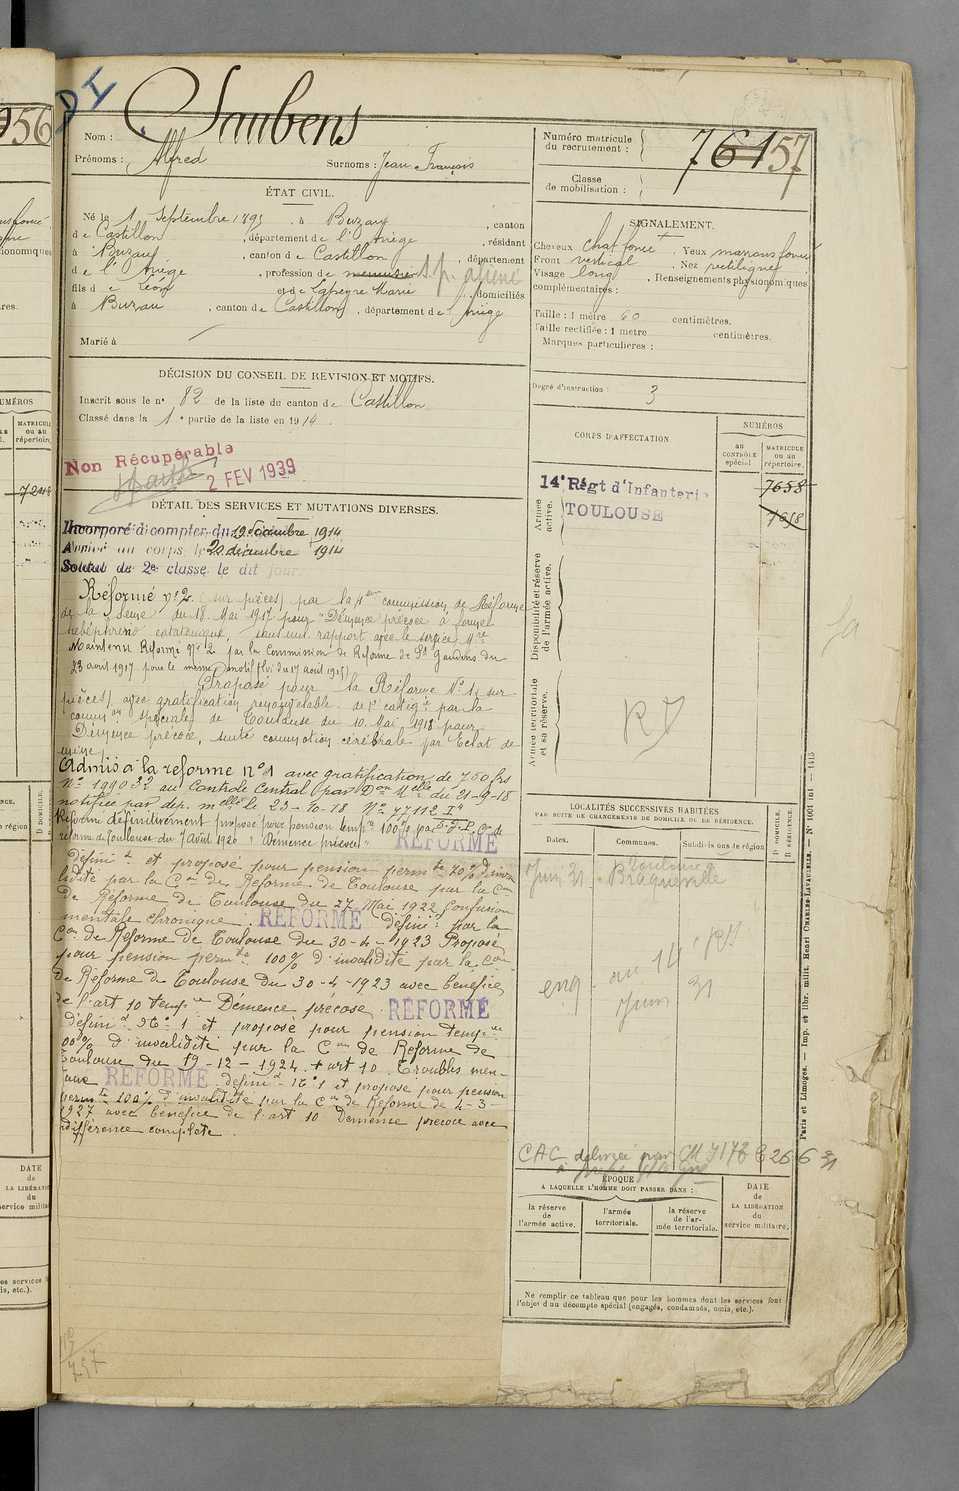 956
Saubens
Nom :
Prénoms : Alfred Surnoms : Jean François
Numéro matricule
du recrutement :
76157
Classe
de mobilisation :
ÉTAT CIVIL.
Né le 1 Septembre 1895, à Buzan, canton
de Castillon, département de l'Ariège, résidant
à Buzan, canton de Castillon, département
de l'Ariège, profession de menuisier s.p. aliéné
fils de Léon et de Lapeyre Marie, domiciliés
à Buzan, canton de Castillon, département de l'Ariège
Marié à
SIGNALEMENT.
Cheveux chat foncé, Yeux marrons foncé
Front vertical, Nez rectiligne
Visage long, Renseignements physionomiques
complémentaires :
Taille : 1 mètre 60 centimètres.
Taille rectifiée : 1 mètre centimètres.
Marques particulières :
Degré d'instruction : 3
DÉCISION DU CONSEIL DE REVISION ET MOTIFS.
Inscrit sous le n° 82 de la liste du canton de Castillon
Classé dans la 1e partie de la liste en 1914.
Non Récupérable
2 FEV 1939
DÉTAIL DES SERVICES ET MUTATIONS DIVERSES.
Incorporé à compter du 19 décembre 1914
Arrivé au corps le 20 décembre 1914
Soldat de 2e classe le dit jour
Réformé n° 2 (sur pièces) par la 1ère commission de Réforme
de la Seine du 18 Mai 1917 pour "Démence précoce à forme
hébéphréno catatonique,
Maintenu Réformé N° 2 par la Commission de Réforme de St Gaudens du
23 août 1917 pour le même motif (loi du 17 août 1915)
Proposé pour la Réforme N° 1 sur
pièces) avec gratification renouvelable de catégie par la
common spéciale de Toulouse du 10 Mai 1918 pour
Démence précoce, suite commotion cérébrale par Eclat de
mine.
Admis à la réforme n° 1 avec gratification de 750 frs
N° 199032 au Contrôle Central (par Don Melle du 21-9-18
notifiée par dép. melle le 23-10-18 N° 77112 I4
Réformé définitivement proposé pour pension tempre 100% par Con de
réforme de Toulouse du 7 Août 1920 "Démence précoce"
RÉFORMÉ
Définit et proposé pour pension permte 20% d'inva
lidité par la Con de Réforme de Toulouse par la Con
de Réforme de Toulouse du 27 Mai 1922 Confusion
mentale chronique. RÉFORMÉ définit par la
Con de Réforme de Toulouse du 30-4-1923 Proposé
pour pension permte 100% d'invalidité par la Con
de Réforme de Toulouse du 30-4-1923 avec bénéfice
de l'art 10 tempre Démence précoce RÉFORMÉ
définit N° 1 et proposé pour pension tempre
100% d'invalidité par la Con de Réforme de
Toulouse du 19-12-1924 + art 10. Troubles men-
taux RÉFORMÉ définit N° 1 et proposé pour pension
permte 100% d'invalidité par la Con de Réforme de 4-3-
1927 avec bénéfice de l'art 10 Démence précoce avec
indifférence complète.
CORPS D'AFFECTATION.
NUMÉROS
au
CONTRÔLE
spécial
MATRICULE
ou au
répertoire.
Armée
active.
14e Régt d'Infanterie
TOULOUSE
7658
7658
Disponibilité et réserve
de l'armée active.
Armée territoriale
et sa réserve.
LOCALITÉS SUCCESSIVES HABITÉES
PAR SUITE DE CHANGEMENTS DE DOMICILE OU DE RÉSIDENCE.
Dates.
Communes.
Subdivisions de région
D DOMICILE.
R RÉSIDENCE
Juin 31 Toulouse
Braqueville
Juin 31
CAC délivrée par CM 7178 26 6 31
ÉPOQUE
A LAQUELLE L'HOMME DOIT PASSER DANS :
la réserve
de
l'armée active.
l'armée
territoriale.
la réserve
de l'ar-
mée territoriale.
DATE
de
LA LIBÉRATION
du
service militaire.
Ne remplir ce tableau que pour les hommes dont les services font
l'objet d'un décompte spécial (engagés, condamnés, omis, etc.).
Paris et Limoges. — Imp. et libr. milit. Henri CHARLES-LAVAUZELLE.